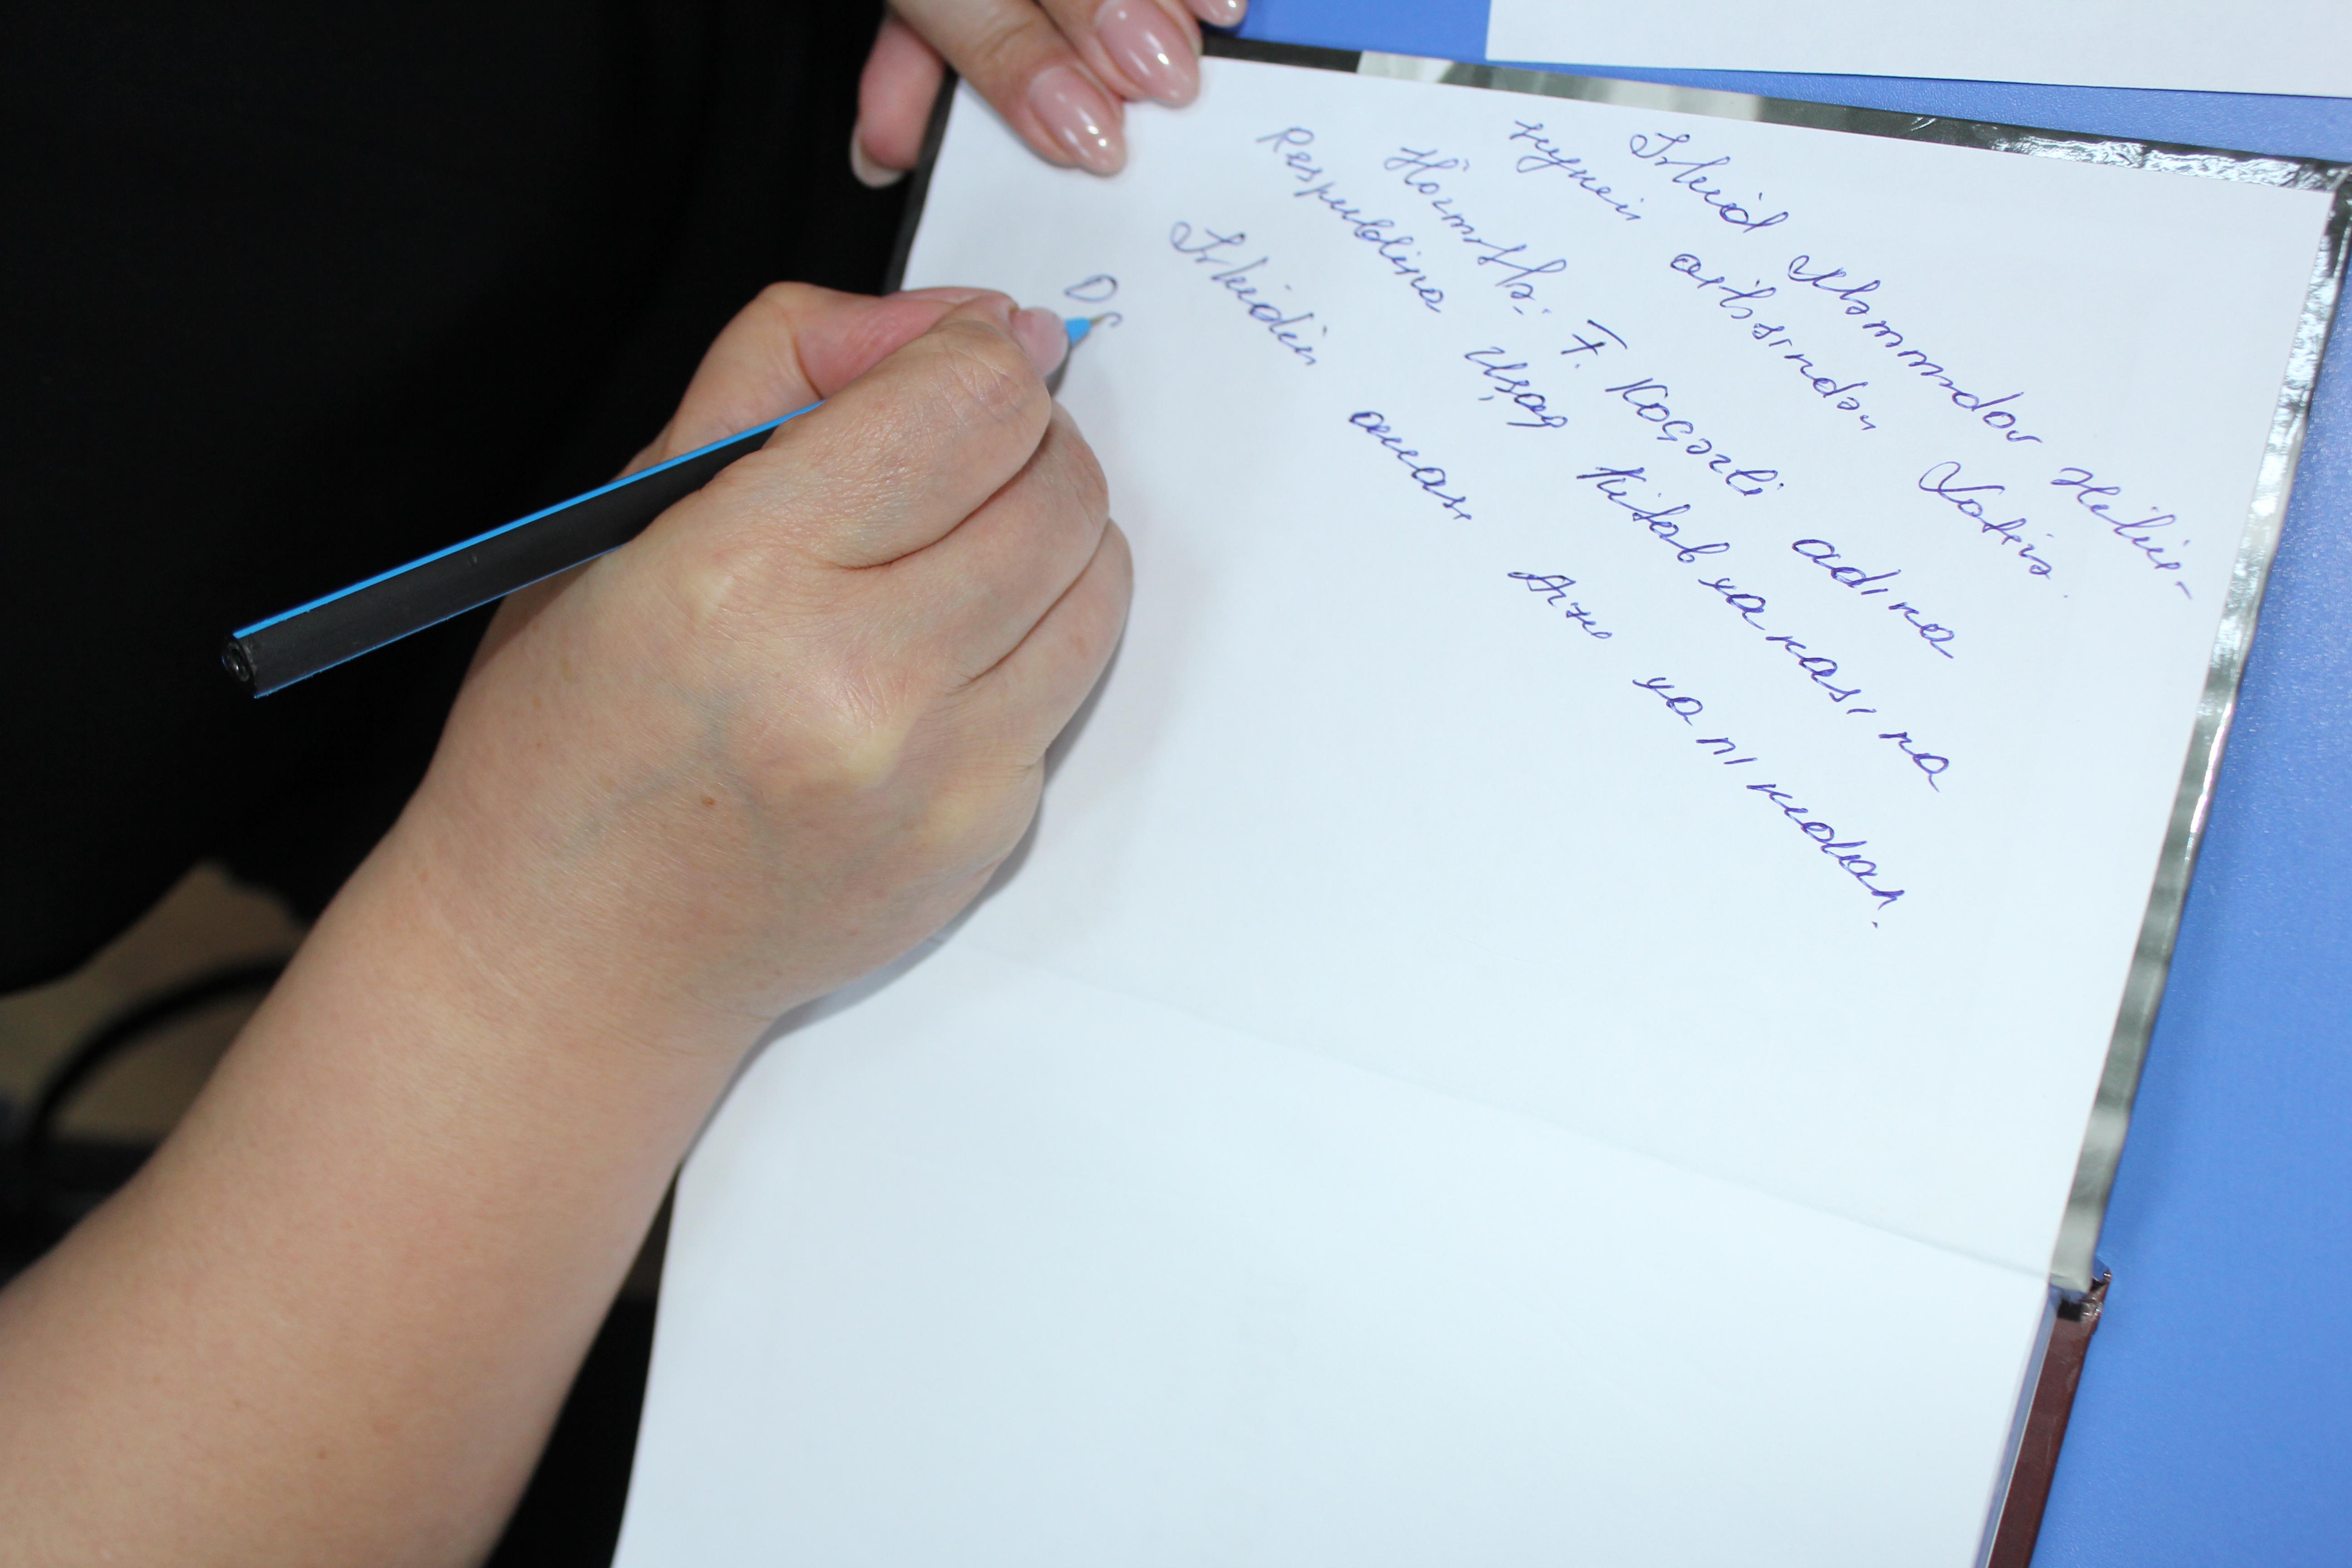 Şəhid Məmmədov
ailəsindən Xatirə.
Hörmətlə: F. Köçərli adına
Respublika Uşaq Kitabxanasına
Şəhidin anası Arzu xanımdan.